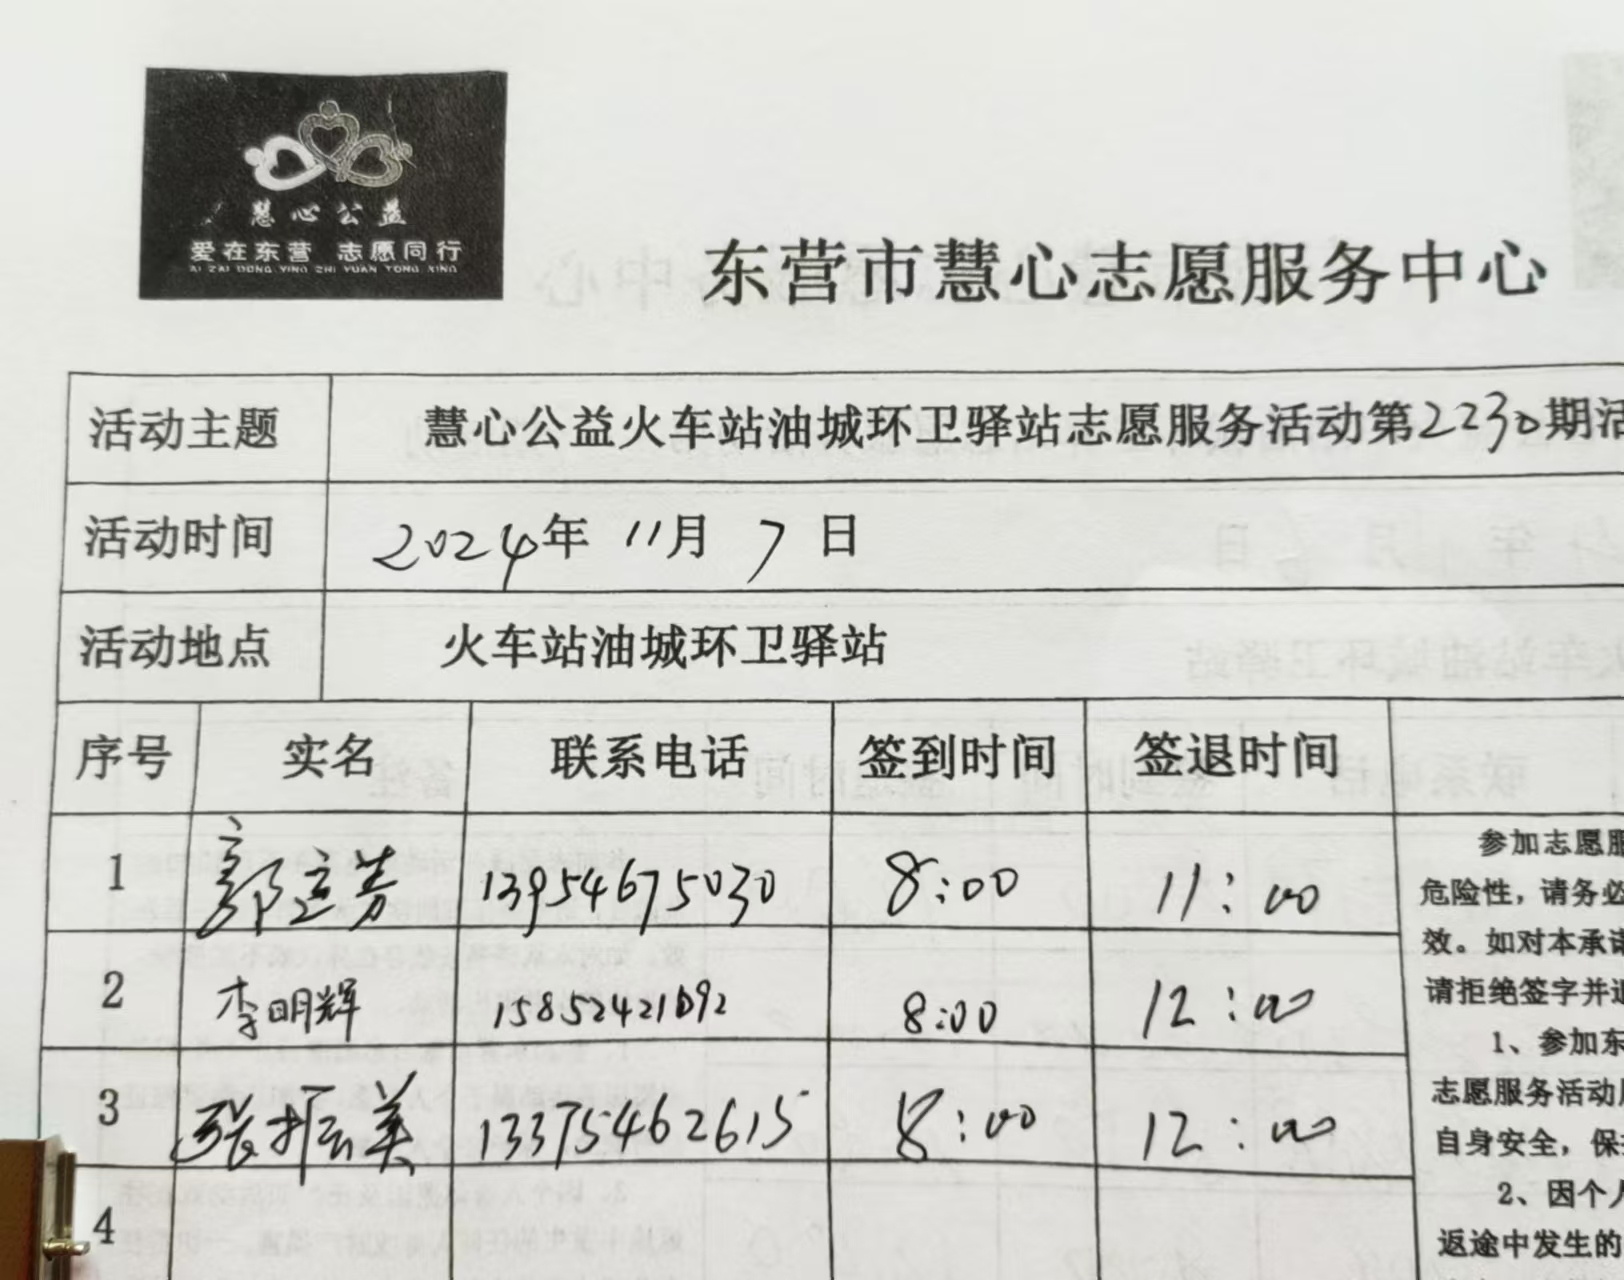 慧心公益
爱在东营 志愿同行
AI ZAI DONG YING ZHI YUAN TONG XING
东营市慧心志愿服务中心
活动主题 慧心公益火车站油城环卫驿站志愿服务活动第2230期活
活动时间 2024年 11月 7 日
活动地点 火车站油城环卫驿站
序号 实名 联系电话 签到时间 签退时间
1 郭立芳 13954675030 8:00 11:00
2 李明辉 15852421692 8:00 12:00
3 张振美 13375462615 8:00 12:00
4
参加志愿服
危险性，请务必
效。如对本承诺
请拒绝签字并退
1、参加东
志愿服务活动
自身安全，保
2、因个人
返途中发生的